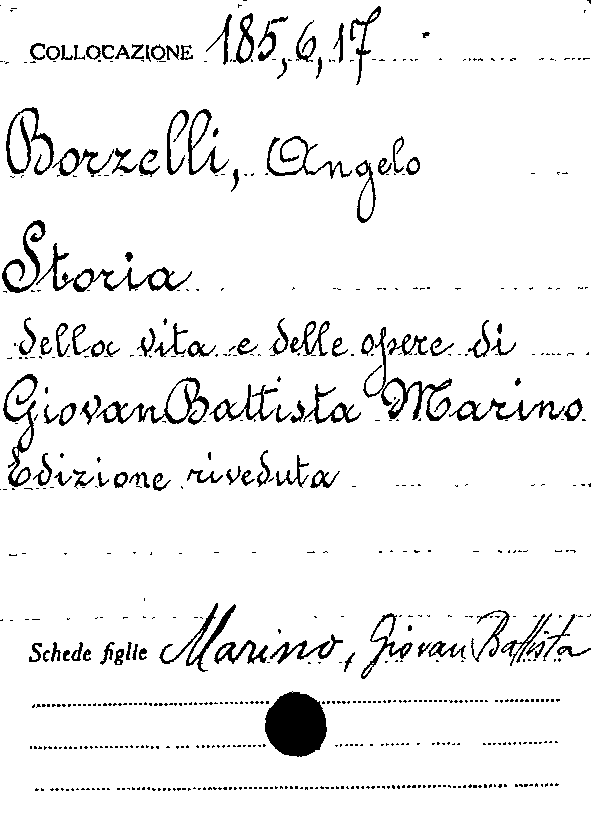 COLLOCAZIONE 185,6,17
Borzelli, Angelo
Storia
della vita e delle opere di
Giovan Battista Marino
Edizione riveduta
Schede figlie Marino, Giovan Battista